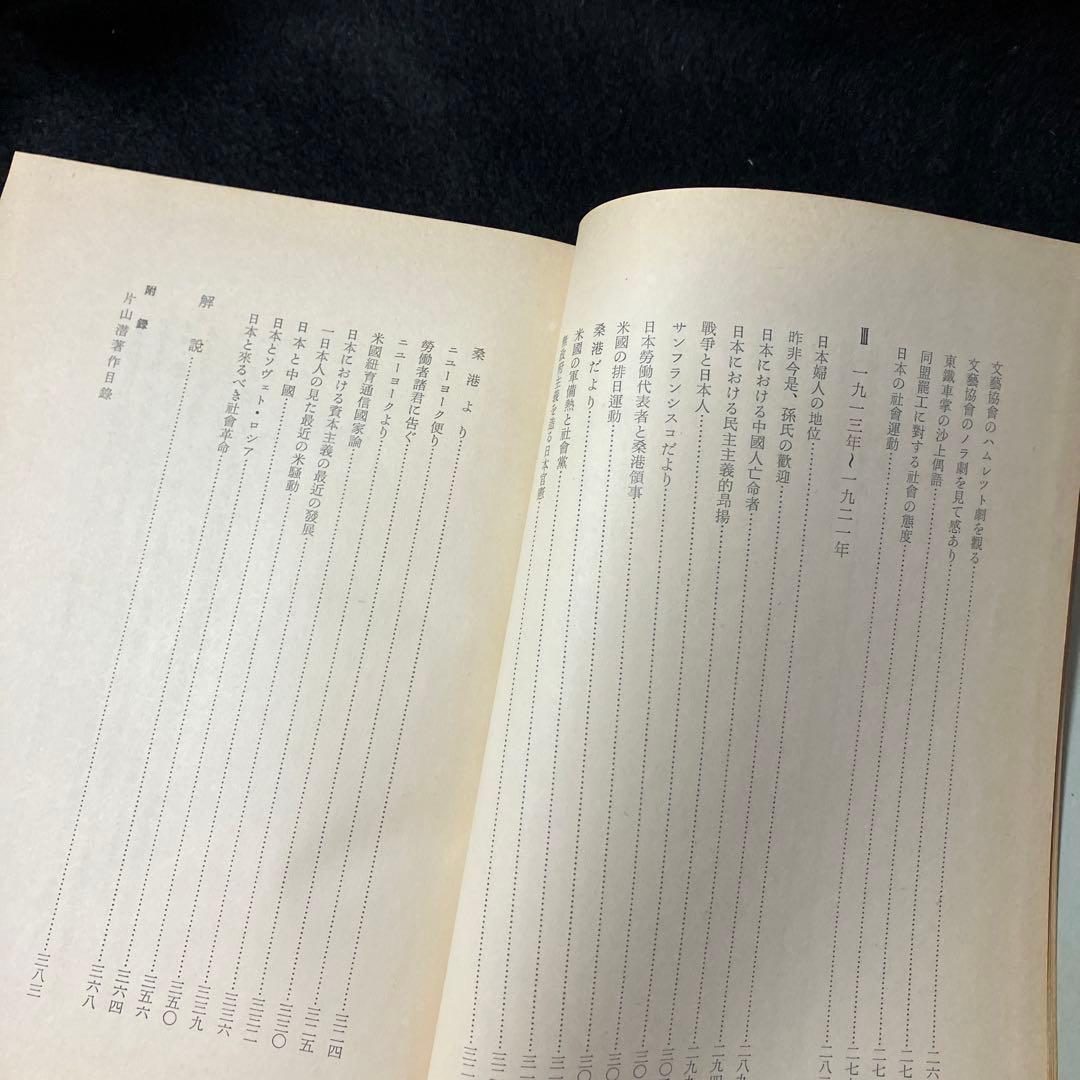 文藝協會のハムレツト劇を觀る
文藝協會のノラ劇を見て感あり
東鐵車掌の沙上偶語
同盟罷工に對する社會の態度
日本の社會運動
Ⅲ 一九一三年〜一九二一年
日本婦人の地位
昨非今是、孫氏の歡迎
日本における中國人亡命者
日本における民主主義的昂揚
戰爭と日本人
サンフランシスコだより
日本勞働代表者と桑港領事
米國の排日運動
桑港だより
米國の軍備熱と社會黨
無政府主義を造る日本官憲
桑港より
ニューヨーク便り 三二四
勞働者諸君に告ぐ 三二五
ニューヨークより 三三〇
米國紐育通信國家論 三三二
日本における資本主義の最近の發展 三三六
一日本人の見た最近の米騷動 三三九
日本と中國 三五〇
日本とソヴェト・ロシア 三五六
日本と來るべき社會革命 三六四
解説 三六八
附錄
片山潛著作目錄 三八三